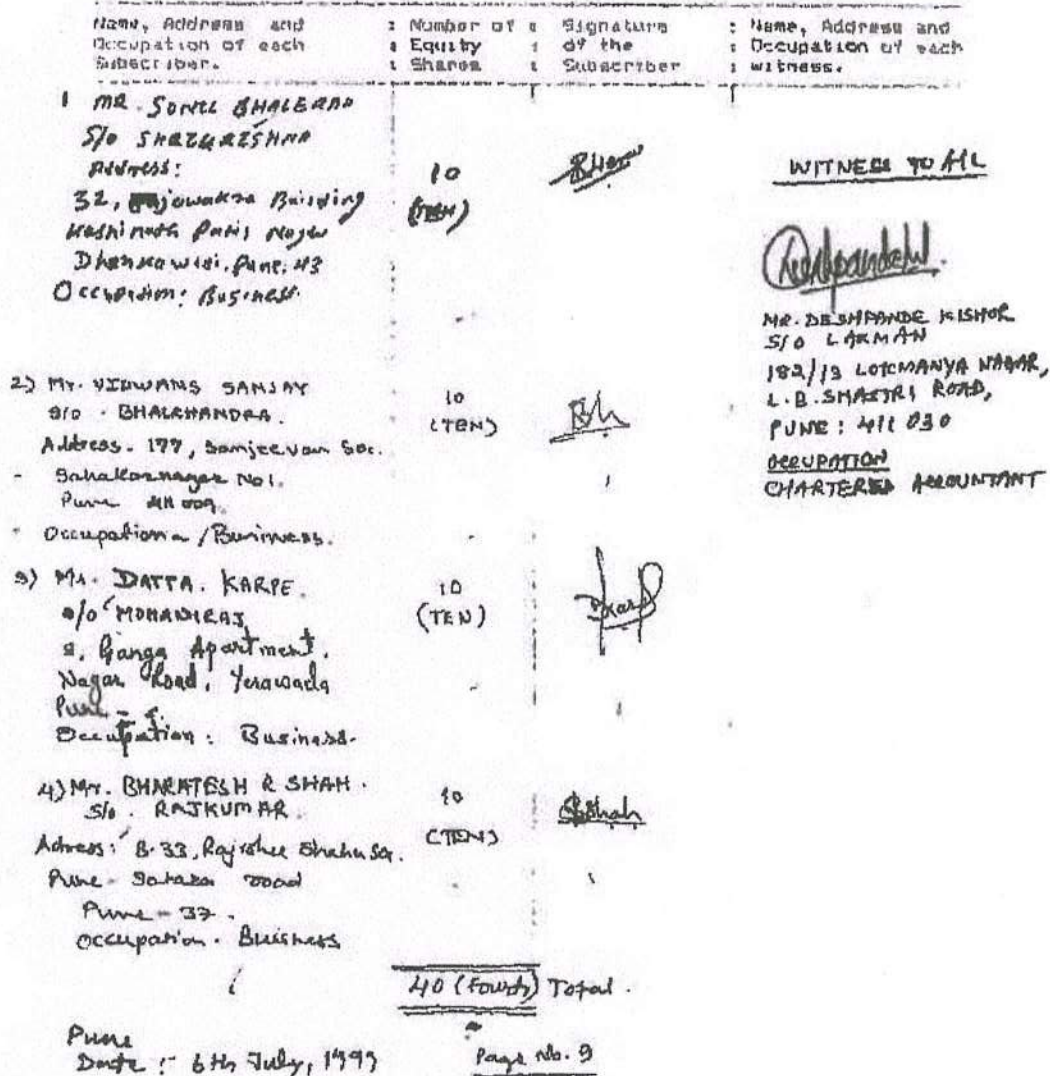 Name, Address and : Number of : Signature : Name, Address and
Occupation of each : Equity : of the : Occupation of each
Subscriber. : Shares : Subscriber : witness.
1 MR. SUNIL BHALERAO
S/o SHRIKRISHNA
Address:
32, Building
Kashinath Patil Nagar
Dhankawadi, Pune. 43
Occupation: Business.
10
(TEN)
WITNESS TO ALL
Deshpande
MR. DESHPANDE KISHOR
S/O LAXMAN
182/13 LOKMANYA NAGAR,
L.B. SHASTRI ROAD,
PUNE: 411 030
OCCUPATION
CHARTERED ACCOUNTANT
2) Mr. VIDWANS SANJAY
S/o. BHALCHANDRA.
Address. 177, Samjeevan Soc.
Sahakarnagar No1.
Pune 411 009.
Occupation - / Business.
10
(TEN)
3) Mr. DATTA. KARPE.
s/o MOHANIRAJ
2, Ganga Apartment.
Nagar Road, Yerawada
Pune - 6.
Occupation: Business.
10
(TEN)
4) Mr. BHARATESH R SHAH.
S/o. RAJKUMAR.
Adress: B-33, Rajrshee Shahu Soc.
Pune - Satara road
Pune - 37.
Occupation. Buisness
10
(TEN)
BShah
40 (Fourty) Total.
Pune
Date :- 6th July, 1993
Page No. 9